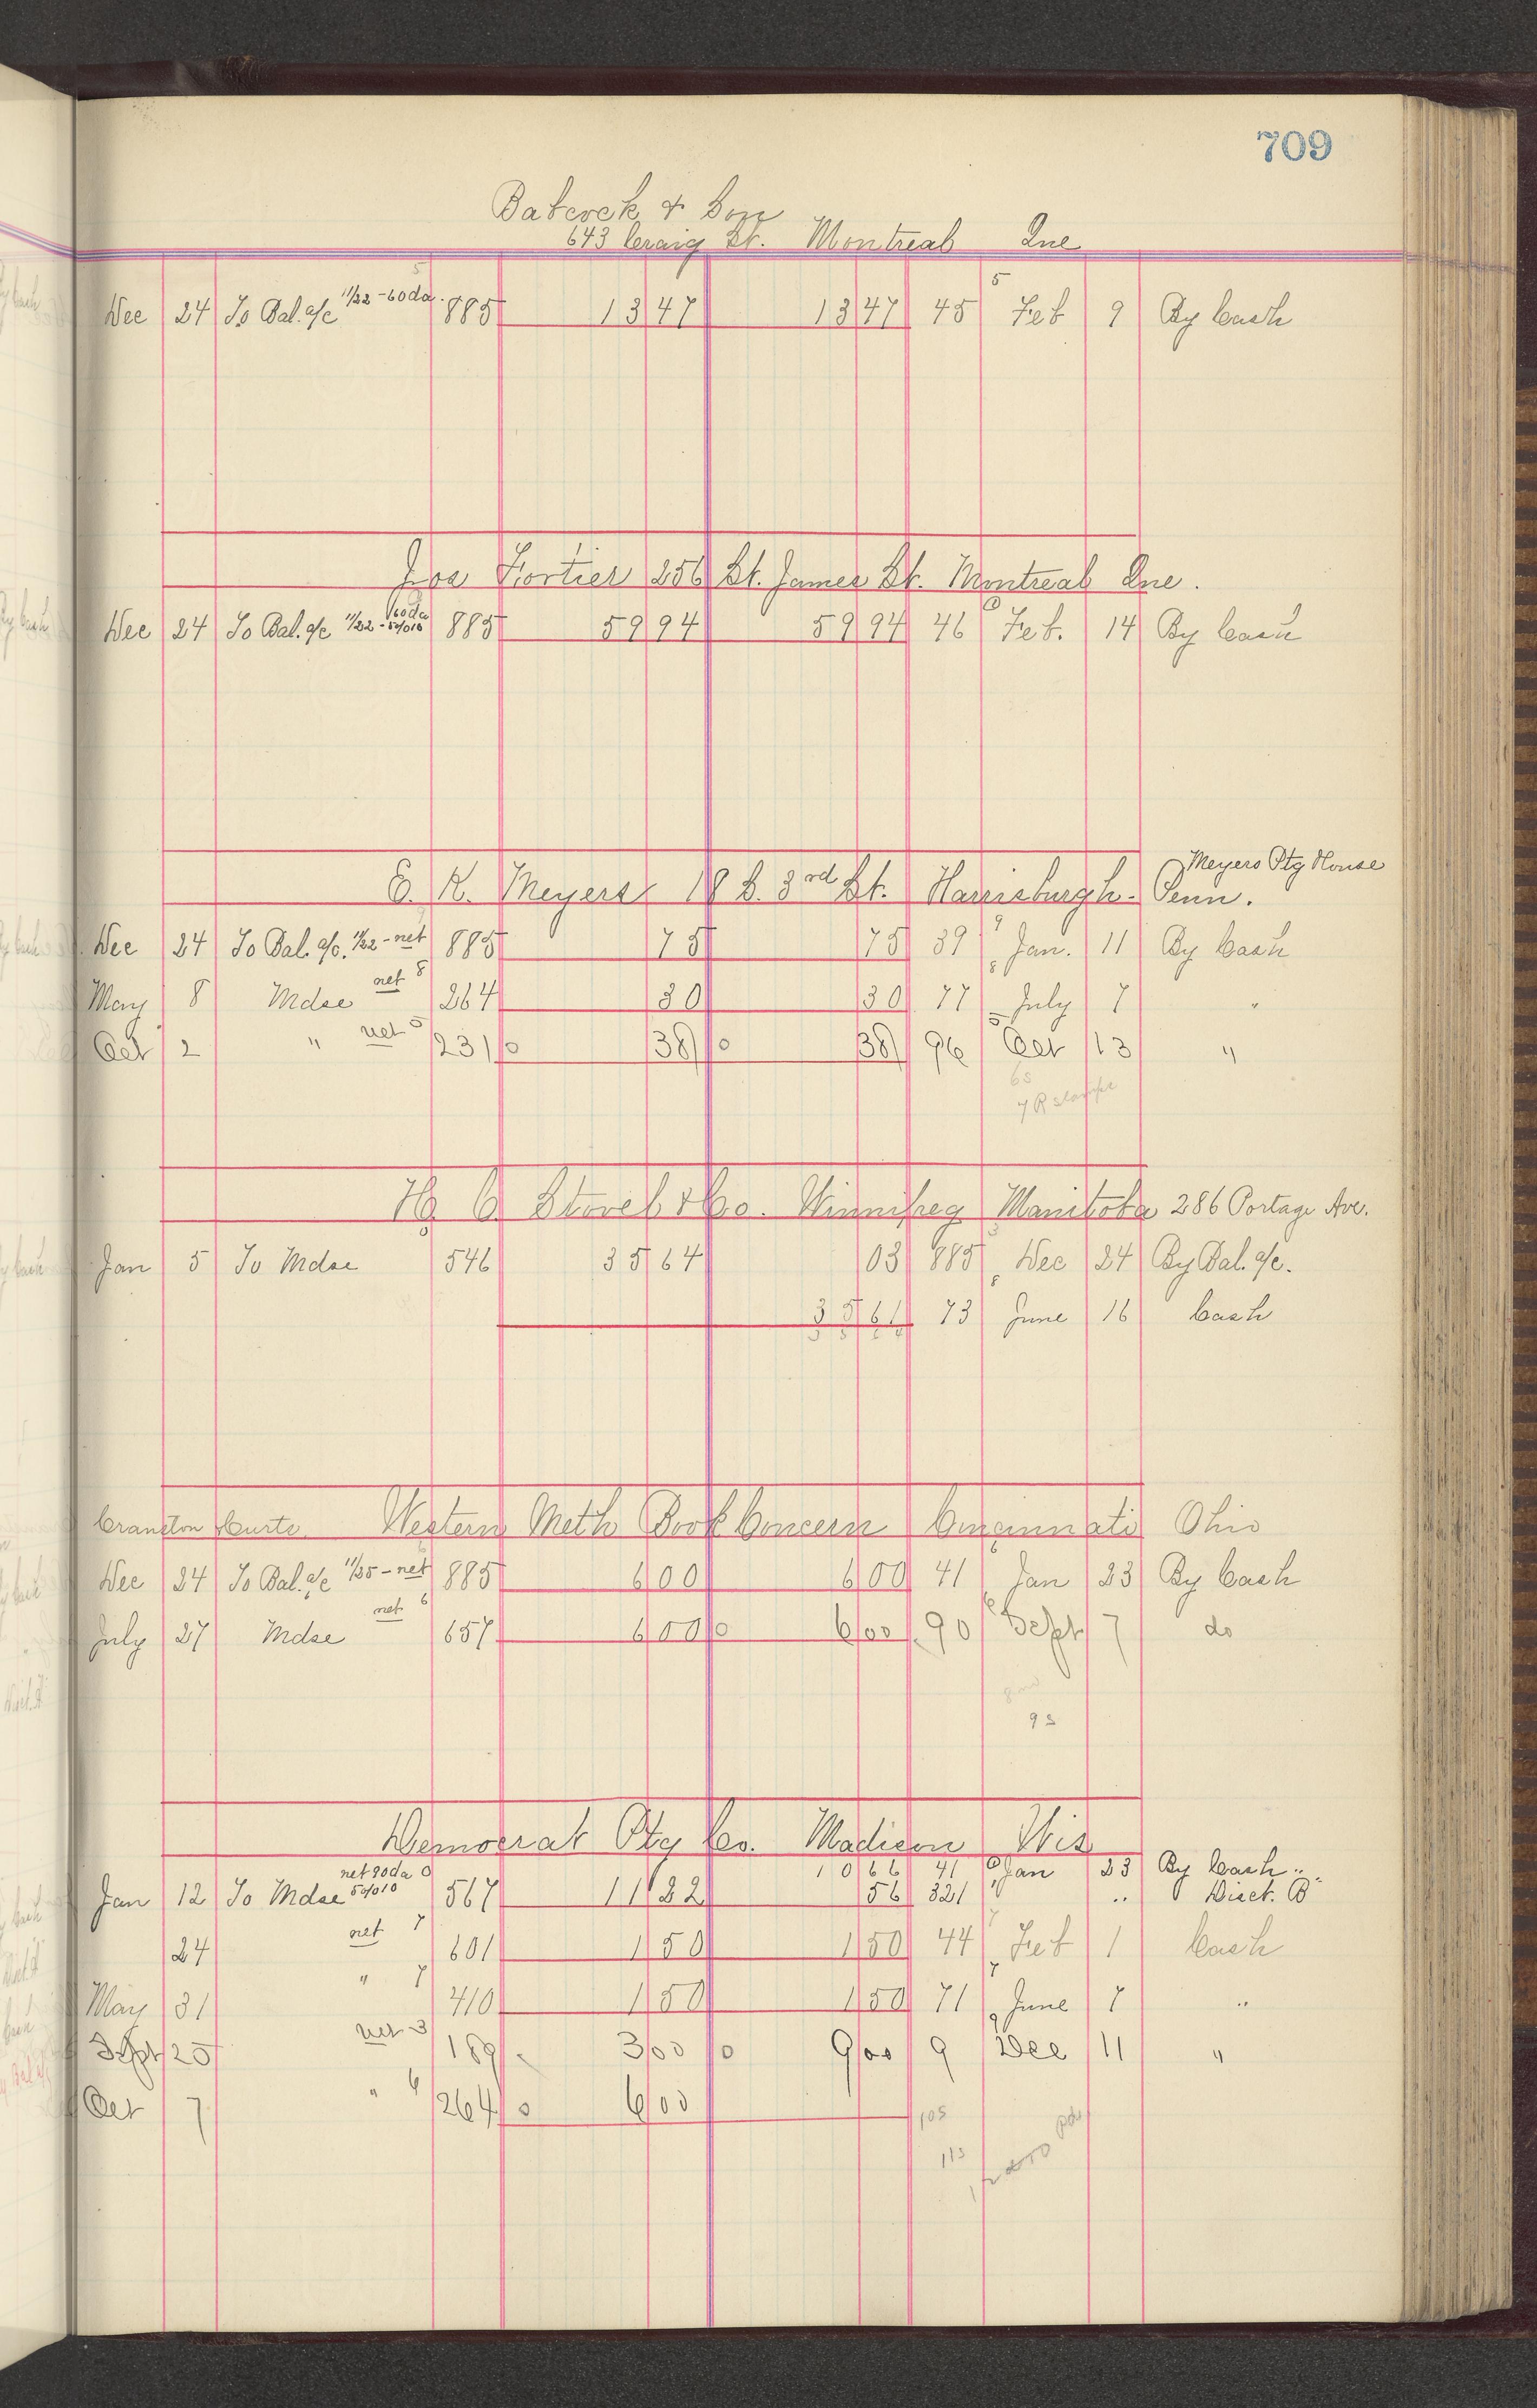 709
Babcock & Son
643 Craig St. Montreal Que
5 5
Dec 24 To Bal. a/c 11/22 - 60 da. 885 13 47 13 47 45 Feb 9 By Cash
Jos Fortier 256 St. James St. Montreal Que.
Dec 24 To Bal. a/c 11/22 - 60 da 5%10 885 59 94 59 94 46 Feb. 14 By Cash
Meyers Ptg House
E. K. Meyers 19 S. 3rd St. Harrisburgh. Penn.
Dec 24 To Bal. a/c. 11/22 - net 885 75 75 39 Jan. 11 By Cash
May 8 Mdse net 8 264 30 30 77 8 July 7 "
Oct 2 " net 5 231 0 38 0 38 96 5 Oct 13 "
H. C. Stovel & Co. Winnipeg Manitoba 286 Portage Ave.
Jan 5 To Mdse 546 35 64 03 885 Dec 24 By Bal. a/c.
35 61 73 8 June 16 Cash
Cranston Curts. Western Meth Book Concern Cincinnati Ohio
Dec 24 To Bal. a/c 11/35 - net 885 6 00 6 00 41 Jan 23 By Cash
July 27 Mdse net 6 657 6 00 0 6 00 90 6 Sept 7 do
93
Democrat Ptg Co. Madison Wis
10 66 41 0 Jan 23 By Cash "
Jan 12 To Mdse net 90 da 5%10 0 567 11 22 56 321 " Disct. B
24 net 7 601 1 50 1 50 44 7 Feb 1 Cash
May 31 " 7 410 1 50 1 50 71 7 June 7 "
Sept 25 net 3 189 3 00 0 9 00 9 9 Dec 11 "
Oct 7 " 6 264 0 6 00
105
113